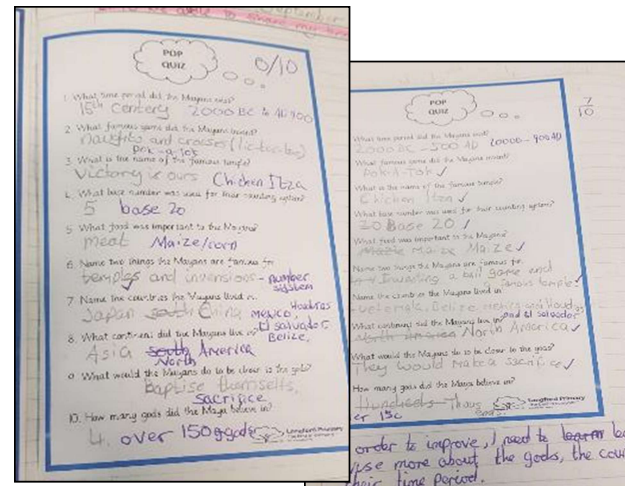 September
to be able to share my
POP
QUIZ
0/10
1. What time period did the Mayans exist?
15th Centery 2000 BC to AD 900
2. What famous game did the Mayans invent?
Naughts and crosses (tic tac toe)
Pok-a-Tok
3. What is the name of the famous temple?
Victory is ours Chichen Itza
4. What base number was used for their counting system?
5 base 20
5. What food was important to the Mayans?
meat Maize/corn
6. Name two things the Mayans are famous for.
temples and invensions - number
system
7. Name the countries the Mayans lived in.
Japan South China Mexico, Honduras
El salvador
8. What continent did the Mayans live in?
Belize,
Asia South America
North
9. What would the Mayans do to be closer to the gods?
Baptise themselfs.
sacrifice
10. How many gods did the Maya believe in?
4. over 150 gods
Longford Primary
POP
QUIZ
7/10
What time period did the Mayans exist?
2000 BC - 500 AD 20000 - 900 AD
What famous game did the Mayans invent?
Pok-A-Tok ✓
What is the name of the famous temple?
Chichen Itza ✓
What base number was used for their counting system?
20 Base 20 ✓
What food was important to the Mayans?
Maize Maize ✓
Name two things the Mayans are famous for.
Inventing a ball game and
famous temple ✓
Name the countries the Mayans lived in
Guatemala, Belize, Mexico and Honduras
and El salvador
What continent did the Mayans live in?
North America North America ✓
What would the Mayans do to be closer to the gods?
They would make a sacrifice ✓
How many gods did the Maya believe in?
Hundreds Thous
er 150
Longford Primary
order to improve, I need to learn
use more about the gods, the cou
their time period.